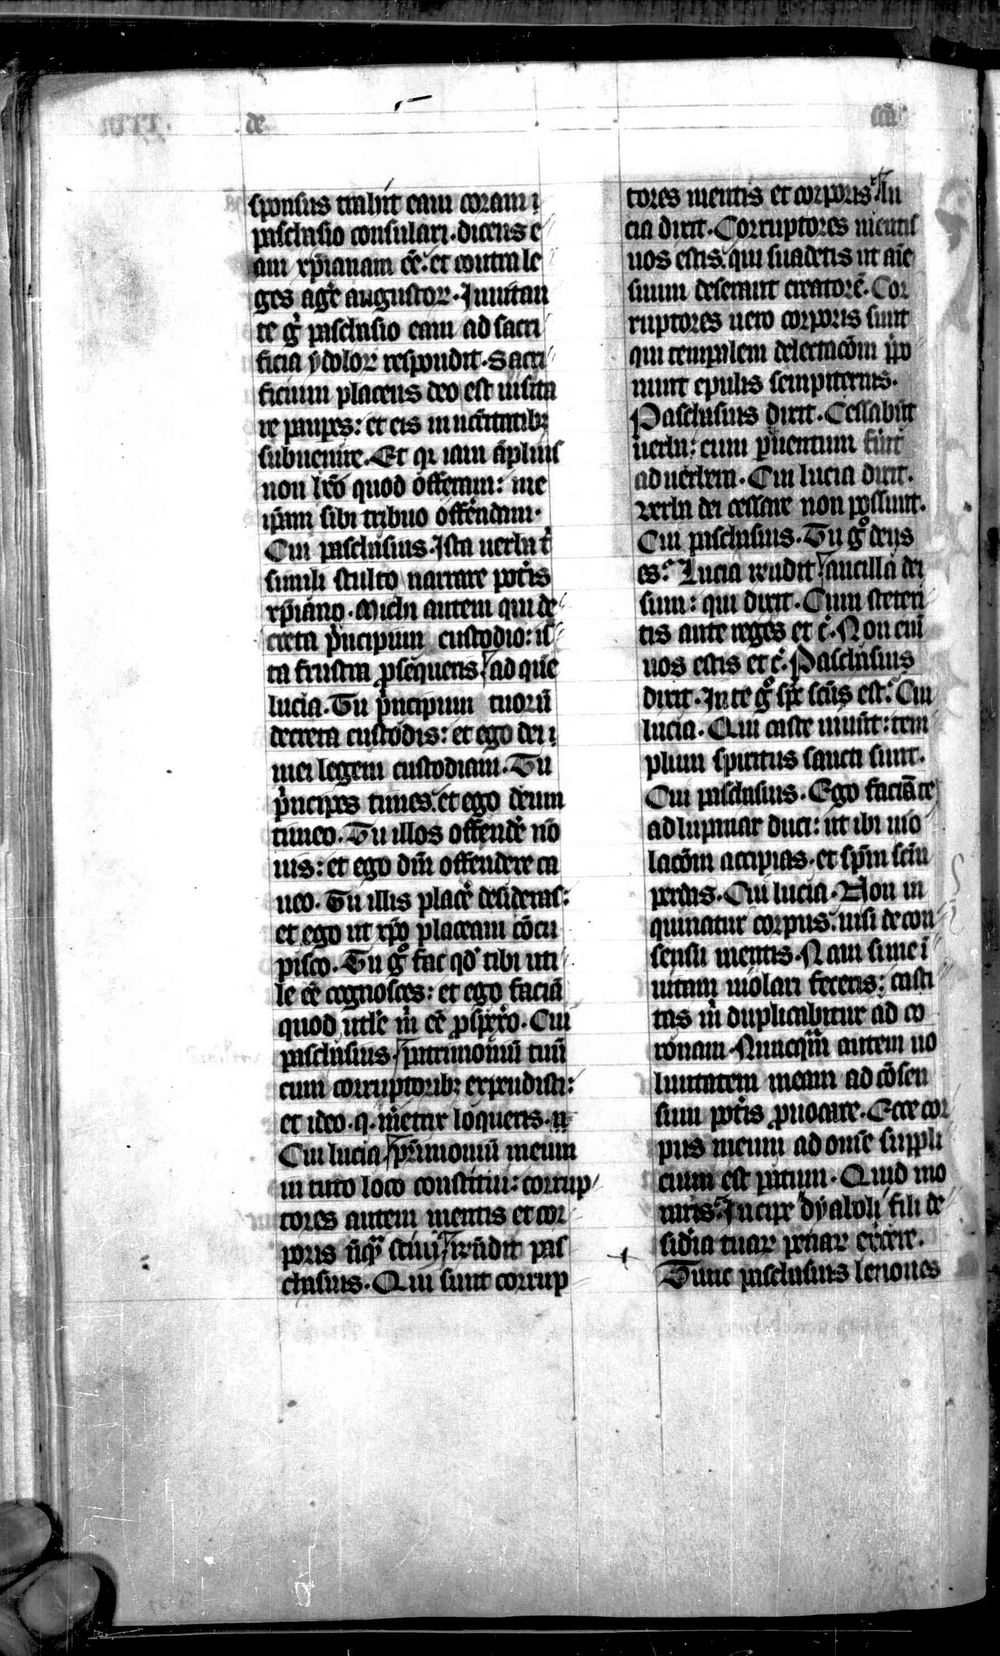 de
sponsus trahit eam coram
paschasio consulari. dicens e
am xp̄ianam eē: et contra le
ges agē augustoꝝ. Inuitan
te gͦ paschasio eam ad sacri
ficia ydoloꝝ respondit. Sacri
ficium placens deo est uisita
re pauꝑes: et eis in nc̄itatibꝫ
subuenire. Et qꝛ iam āplius
non hēo quod offeram: me
ip̄am sibi tribuo offerendam.
Cui paschasius. Ista uerba t
simili stulto narrare potis
xp̄iano. Michi autem qui de
creta p̄ncipum custodio: is
ta frustra ꝓsequeris ad quē
lucia. Tu p̄ncipum tuorū
decreta custodis: et ego dei
mei legem custodiam. Tu
p̄ncipes times. et ego deum
timeo. Tu illos offendē nō
uis: et ego dm̄ offendere ca
ueo. Tu illis placē desideras:
et ego ut xp̄o placeam cōcu
pisco. Tu gͦ fac qd̓ tibi uti
le eē cognosces: et ego faciā
quod utile m̄ eē ꝓspexero. Cui
paschasius. patrimoniū tuū
cum corruptoribꝫ expendisti:
et ideo .q. meretrix loqueris.
Cui lucia. p̄rimoniū meum
in tuto loco constitui: corrup
tores autem mentis et cor
poris ūqꝫ sciui. rn̄dit pas
chasius. Qui sunt corrup
tores mentis et corporis. Lu
cia dixit. Corruptores mentis
uos estis. qui suadetis ut aīe
suum deserant creatorē. Cor
ruptores uero corporis sunt
qui temꝑalem delectacōm p̄po
nunt epulis sempiternis.
Paschasius dixit. Cessabūt
uerba: cum ꝑuentum fūit
ad uerbera. Cui lucia dixit.
verba dei cessare non possunt.
Cui paschasius. Tu gͦ deus
es. Lucia rn̄dit. ancilla dei
sum: qui dixit. Cum steteri
tis ante reges et c̄. Non enī
uos estis et c̄. Paschasius
dixit. In te gͦ sp̄c scūs est. Cui
lucia. Qui caste uiuūt: tem
plum spiritus sancti sunt.
Cui paschasius. Ego faciā te
ad lupanar duci: ut ibi uio
lacōm accipias. et sp̄m scm̄
perdas. Cui lucia. Non in
quinatur corpus. nisi de con
sensu mentis. Nam si me ī
uitam uiolari feceris: casti
tas m̄ duplicabitur ad co
ronam. Nunqͣm autem uo
luntatem meam ad cōsen
sum potis ꝓuocare. Ecce cor
pus meum ad omē suppli
cium est paratum. Quid mo
raris. Incipe dyaboli fili de
sidia tuaꝝ penaꝝ exercere.
Tunc paschasius lenones